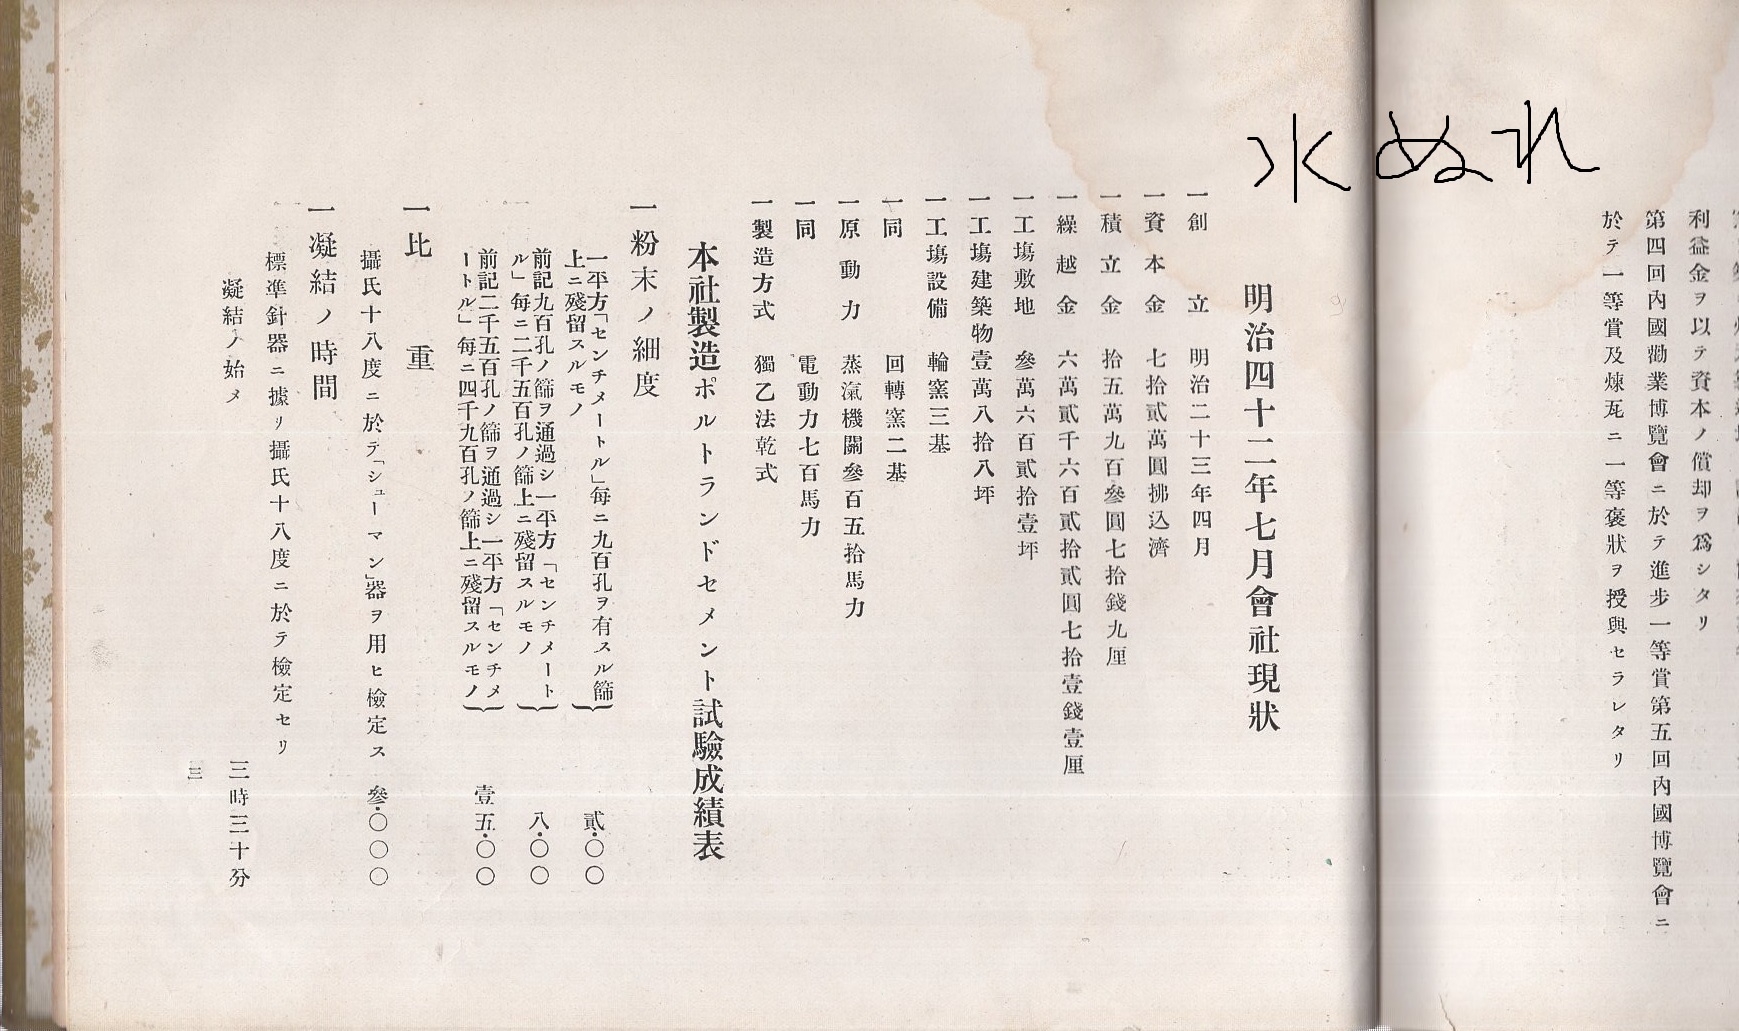 水ぬれ
利益金ヲ以テ資本ノ償却ヲ爲シタリ
第四回內國勸業博覽會ニ於テ進步一等賞第五回內國博覽會ニ
於テ一等賞及煉瓦ニ一等褒狀ヲ授與セラレタリ
明治四十二年七月會社現狀
一創立 明治二十三年四月
一資本金 七拾貳萬圓拂込濟
一積立金 拾五萬九百參圓七拾錢九厘
一繰越金 六萬貳千六百貳拾貳圓七拾壹錢壹厘
一工塲敷地 參萬六百貳拾壹坪
一工塲建築物壹萬八拾八坪
一工塲設備 輪窯三基
一同 回轉窯二基
一原動力 蒸氣機關參百五拾馬力
一同 電動力七百馬力
一製造方式 獨乙法乾式
本社製造ポルトランドセメント試驗成績表
一粉末ノ細度
一平方「センチメートル」每ニ九百孔ヲ有スル篩
上ニ殘留スルモノ 貳·〇〇
前記九百孔ノ篩ヲ通過シ一平方「センチメート
ル」每ニ二千五百孔ノ篩上ニ殘留スルモノ 八·〇〇
前記二千五百孔ノ篩ヲ通過シ一平方「センチメ
ートル」每ニ四千九百孔ノ篩上ニ殘留スルモノ 壹五·〇〇
一比重
攝氏十八度ニ於テ「シューマン」器ヲ用ヒ檢定ス 參·〇〇〇
一凝結ノ時間
標準針器ニ據リ攝氏十八度ニ於テ檢定セリ
凝結ノ始メ 三時三十分
三